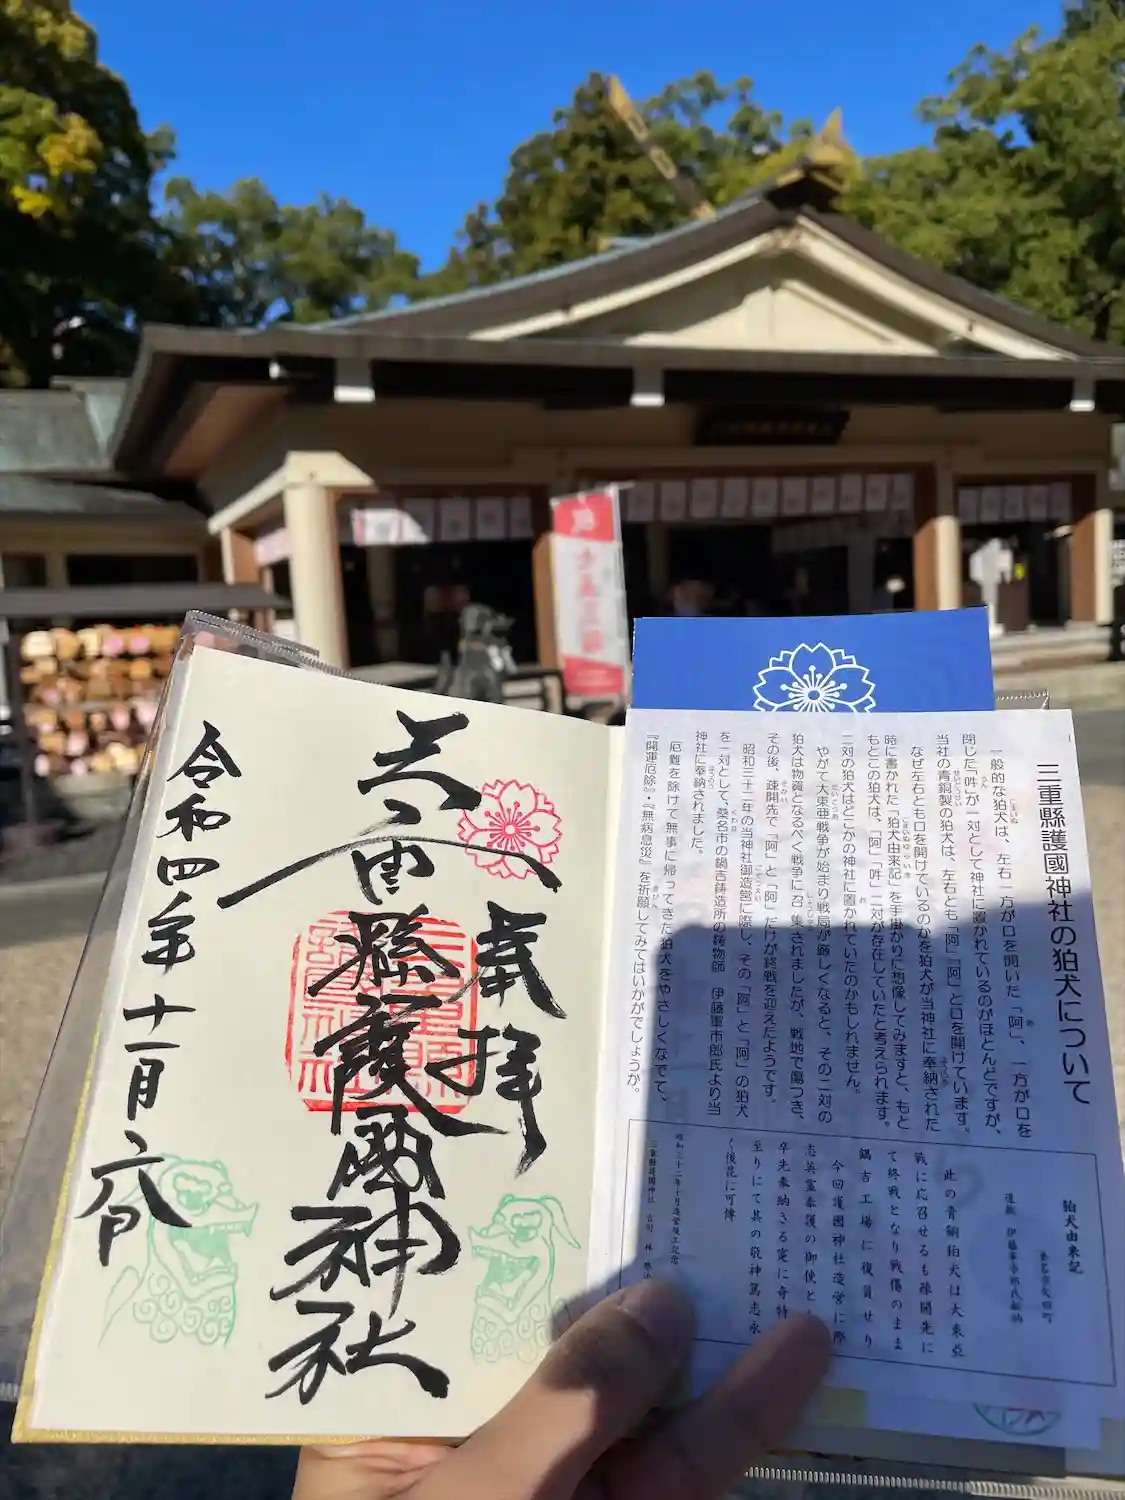 奉拝
三重縣護國神社
令和四年十一月六日
三重縣護國神社の狛犬について
一般的な狛犬は、左右一方が口を開いた「阿」、一方が口を
閉じた「吽」が一対として神社に置かれているのがほとんどですが、
当社の青銅製の狛犬は、左右とも「阿」「阿」と口を開けています。
なぜ左右とも口を開けているのかを狛犬が当神社に奉納された
時に書かれた「狛犬由来記」を手掛かりに想像してみますと、もと
もとこの狛犬は、「阿」「吽」二対が存在していたと考えられます。
二対の狛犬はどこかの神社に置かれていたのかもしれません。
やがて大東亜戦争が始まり戦局が厳しくなると、その二対の
狛犬は物資となるべく戦争に召集されましたが、戦地で傷つき、
その後、疎開先で「阿」と「阿」だけが終戦を迎えたようです。
昭和三十二年の当神社御造営に際し、その「阿」と「阿」の狛犬
を一対として、桑名市の鍋吉鋳造所の鋳物師 伊藤軍市郎氏より当
神社に奉納されました。
厄難を除けて無事に帰ってきた狛犬をやさしくなでて、
『開運厄除』・『無病息災』を祈願してみてはいかがでしょうか。
狛犬由来記
此の青銅狛犬は大東亞
戦に応召せるも疎開先に
て終戦となり戦傷のまま
鍋吉工場に復員せり
今回護國神社造営に際
志英霊奉護の御使と
卒先奉納さる寔に奇特
至りにて其の敬神篤志永
く後昆に可傳
昭和三十二年十月造営竣工記念
三重縣護國神社